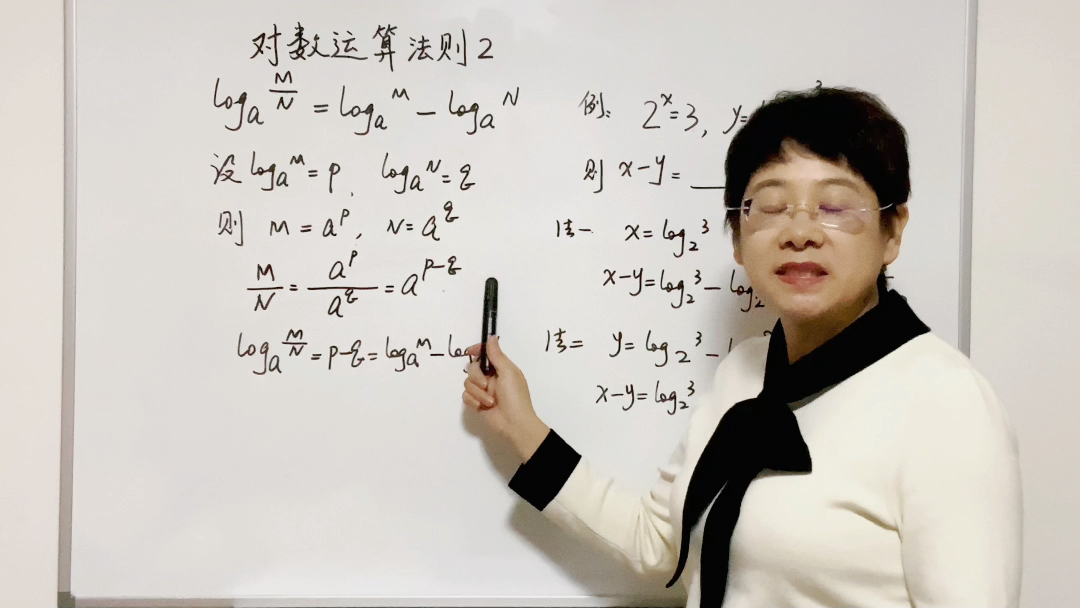 对数运算法则2
logₐ M/N = logₐ M − logₐ N
设 logₐ M = p, logₐ N = q
则 M = a^p, N = a^q
M/N = a^p/a^q = a^(p−q)
logₐ M/N = p−q = logₐ M − log
例: 2^x=3, y=
则 x−y=
法一 x=log₂ 3
x−y=log₂ 3 − log₂
法二 y=log₂ 3 − l
x−y=log₂ 3